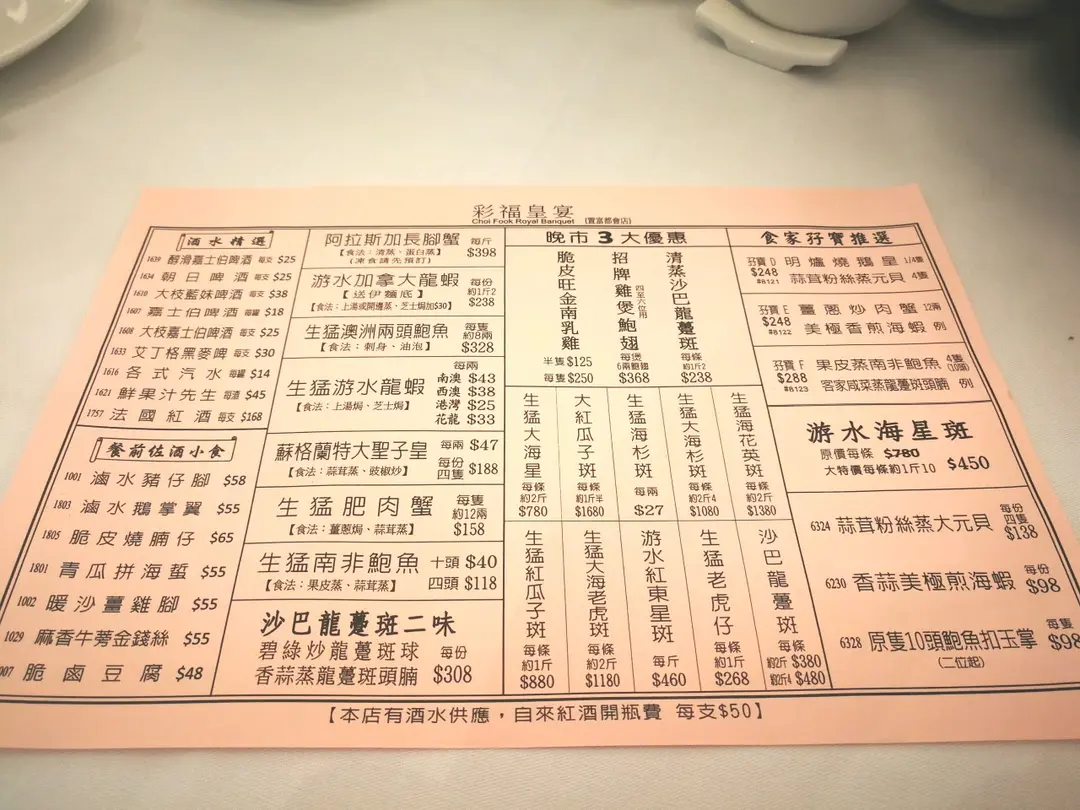 彩福皇宴
Choi Fook Royal Banquet (置富都會店)
酒水精選
1639 醇滑嘉士伯啤酒 每支 $25
1634 朝日啤酒 每支 $25
1610 大枝藍妹啤酒 每支 $38
1607 嘉士伯啤酒 每罐 $18
1608 大枝嘉士伯啤酒 每支 $25
1633 艾丁格黑麥啤 每支 $30
1616 各式汽水 每罐 $14
1621 鮮果汁先生 每渣 $45
1757 法國紅酒 每支 $168
餐前佐酒小食
1001 滷水豬仔腳 $58
1803 滷水鵝掌翼 $55
1805 脆皮燒腩仔 $65
1801 青瓜拼海蜇 $55
1002 暖沙薑雞腳 $55
1029 麻香牛蒡金錢絲 $55
007 脆鹵豆腐 $48
阿拉斯加長腳蟹 每斤 $398
【食法：清蒸、蛋白蒸】
(凍食請先預訂)
游水加拿大龍蝦 每份 約1斤2 $238
【送伊麵底】
【食法：上湯或開邊蒸、芝士焗加$30】
生猛澳洲兩頭鮑魚 每隻 約8兩 $328
【食法：刺身、油泡】
生猛游水龍蝦
【食法：上湯焗、芝士焗】
每兩
南澳 $43
西澳 $38
港灣 $25
花龍 $33
蘇格蘭特大聖子皇 每兩 $47
【食法：蒜茸蒸、豉椒炒】 每份 四隻 $188
生猛肥肉蟹 每隻 約12兩 $158
【食法：薑蔥焗、蒜茸蒸】
生猛南非鮑魚 十頭 $40
【食法：果皮蒸、蒜茸蒸】 四頭 $118
沙巴龍躉斑二味
碧綠炒龍躉斑球 每份
香蒜蒸龍躉斑頭腩 $308
晚市3大優惠
脆皮旺金南乳雞
半隻 $125
每隻 $250
招牌雞煲鮑翅
四至六位用
每煲
6兩鮑翅
$368
清蒸沙巴龍躉斑
每條
約1斤2
$238
生猛大海星
每條
約2斤
$780
大紅瓜子斑
每條
約1斤半
$1680
生猛海杉斑
每兩
$27
生猛大海杉斑
每條
約2斤4
$1080
生猛海花英斑
每條
約2斤
$1380
生猛紅瓜子斑
每條
約1斤
$880
生猛大海老虎斑
每條
約2斤
$1180
游水紅東星斑
每斤
$460
生猛老虎仔
每條
約1斤
$268
沙巴龍躉斑
每條
約2斤 $380
約2斤4 $480
食家孖寶推選
孖寶 D 明爐燒鵝皇 1/4隻
$248
#8121 蒜茸粉絲蒸元貝 4隻
孖寶 E 薑蔥炒肉蟹 12兩
$248
#8122 美極香煎海蝦 例
孖寶 F 果皮蒸南非鮑魚 4隻 (10頭)
$288
#8123 客家咸菜蒸龍躉斑頭腩 例
游水海星斑
原價每條 $780
大特價每條約1斤10 $450
6324 蒜茸粉絲蒸大元貝 每份 四隻 $138
6230 香蒜美極煎海蝦 每份 $98
6328 原隻10頭鮑魚扣玉掌 每隻 $98
(二位起)
【本店有酒水供應，自來紅酒開瓶費 每支$50】